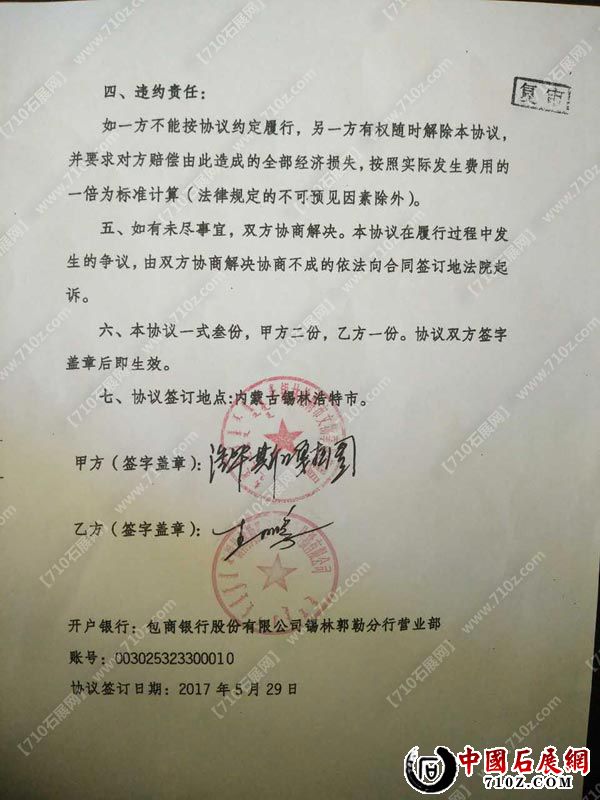 复审
四、违约责任：
如一方不能按协议约定履行，另一方有权随时解除本协议，
并要求对方赔偿由此造成的全部经济损失，按照实际发生费用的
一倍为标准计算（法律规定的不可预见因素除外）。
五、如有未尽事宜，双方协商解决。本协议在履行过程中发
生的争议，由双方协商解决协商不成的依法向合同签订地法院起
诉。
六、本协议一式叁份，甲方二份，乙方一份。协议双方签字
盖章后即生效。
七、协议签订地点:内蒙古锡林浩特市。
甲方（签字盖章）：
乙方（签字盖章）：
开户银行：包商银行股份有限公司锡林郭勒分行营业部
账号：003025323300010
协议签订日期：2017 年 5 月 29 日
【710石展网】
www.710z.com
中國石展網
710Z.COM